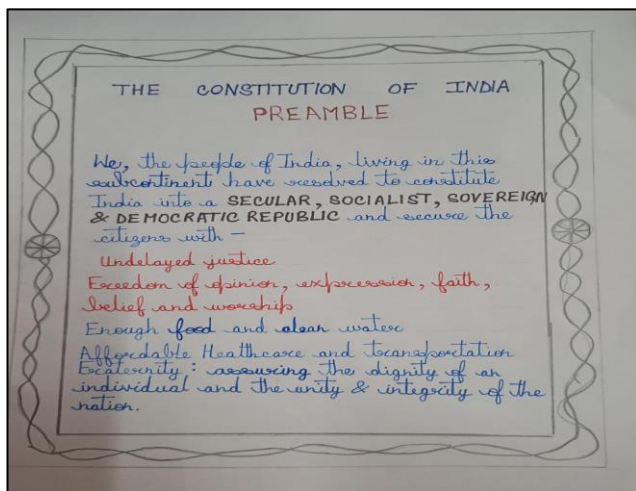 THE CONSTITUTION OF INDIA
PREAMBLE
We, the people of India, living in this
subcontinent have resolved to constitute
India into a SECULAR, SOCIALIST, SOVEREIGN
& DEMOCRATIC REPUBLIC and secure the
citizens with -
Undelayed justice
Freedom of opinion, expression, faith,
belief and worship
Enough food and clean water
Affordable Healthcare and transportation
Fraternity : assuring the dignity of an
individual and the unity & integrity of the
nation.